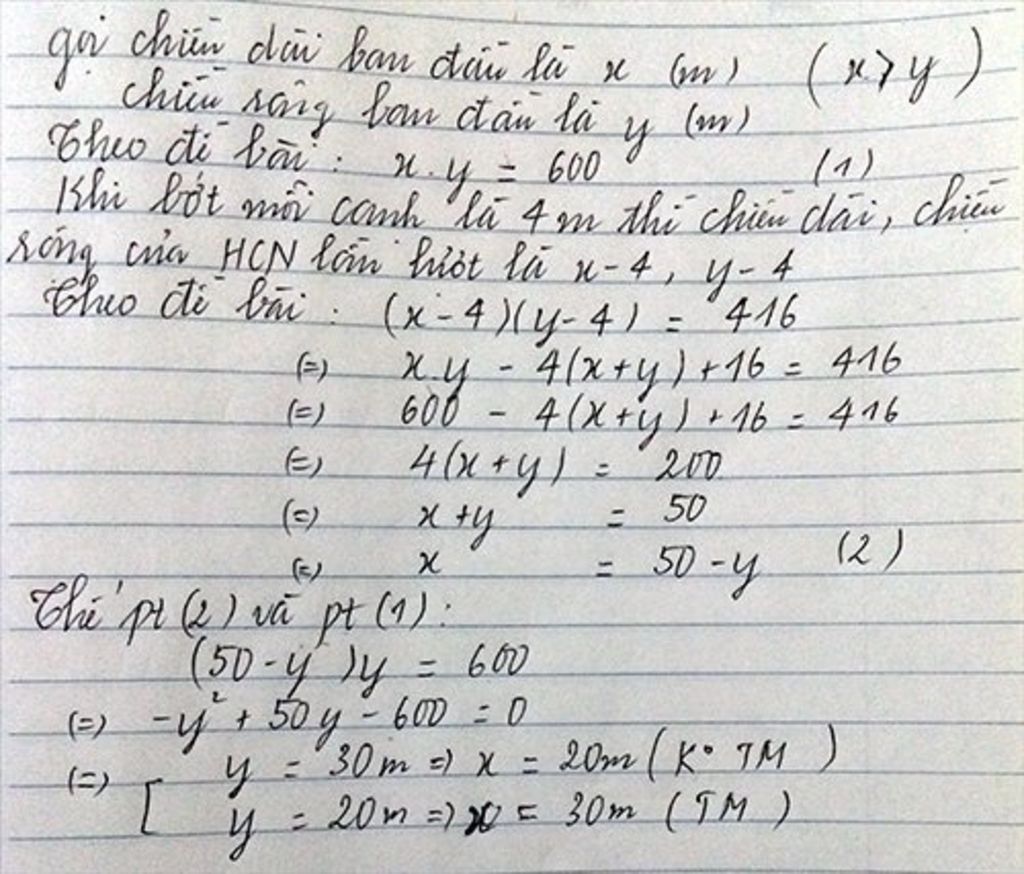 gọi chiều dài ban đầu là x (m) (x > y)
chiều rộng ban đầu là y (m)
Theo đề bài : x.y = 600 (1)
Khi bớt mỗi cạnh là 4m thì chiều dài, chiều
rộng của HCN lần lượt là x-4, y-4
Theo đề bài : (x-4)(y-4) = 416
(=) x.y - 4(x+y) + 16 = 416
(=) 600 - 4(x+y) + 16 = 416
(=) 4(x+y) = 200
(=) x+y = 50
(=) x = 50-y (2)
Thế pt (2) và pt (1) :
(50-y)y = 600
(=) -y² + 50y - 600 = 0
(=) [ y = 30m => x = 20m (K° TM)
y = 20m => x = 30m (TM)